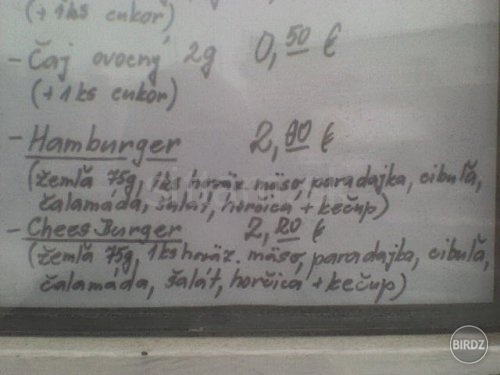 (+ 1ks cukor)
- Čaj ovocný 2g 0,50 €
(+ 1ks cukor)
- Hamburger 2,00 €
(žemľa 75g, 1ks hov. mäso, paradajka, cibuľa,
čalamáda, šalát, horčica + kečup)
- Chees Burger 2,20 €
(žemľa 75g, 1ks hov. mäso, paradajka, cibuľa,
čalamáda, šalát, horčica + kečup)
BIRDZ